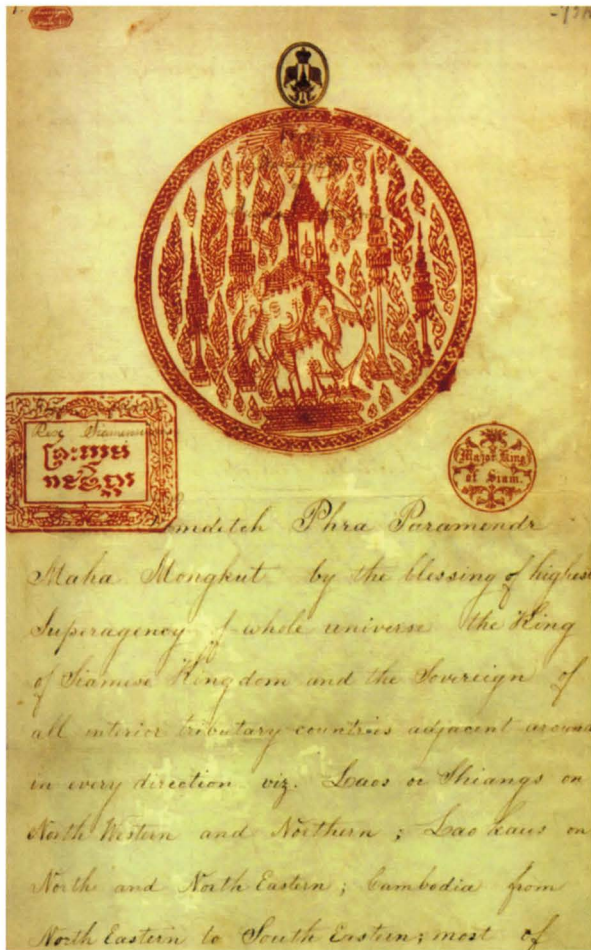 Rex Siamensium
Major King
of Siam.
Somditch Phra Paramendr
Maha Mongkut by the blessing of highest
Superagency of whole universe the King
of Siamese Kingdom and the Sovereign of
all interior tributary countries adjacent around
in every direction viz. Laos or Shiangs on
North Western and Northern; Lao kaus on
North and North Eastern; Cambodia from
North Eastern to South Eastern; most of